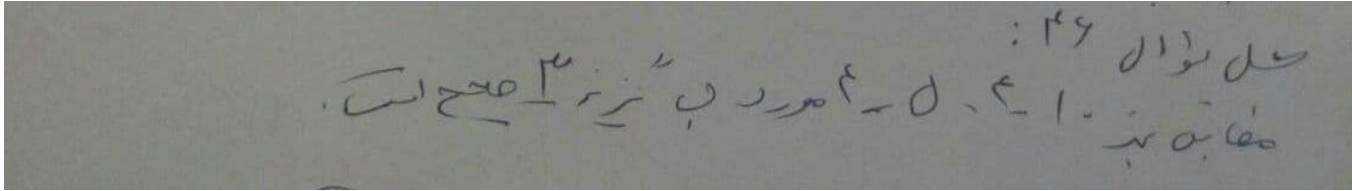 حل سوال ۴۶:
مطابق بند ۱۰-۴-۵-۴ مورد ب گزینه ۳ صحیح است.